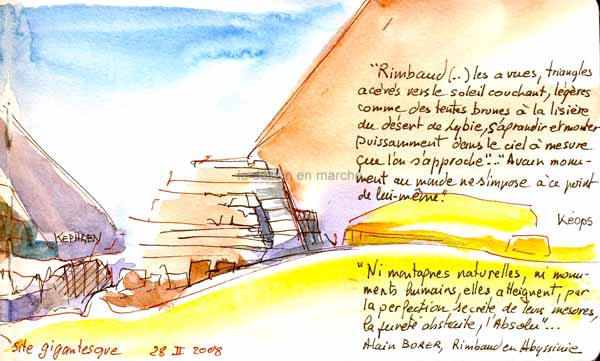 "Rimbaud (..) les a vues, triangles
acérés vers le soleil couchant, légères
comme des tentes brunes à la lisière
du désert de Lybie, s'agrandir et monter
puissamment dans le ciel à mesure
que l'on s'approche"..."Aucun monu-
ment au monde ne s'impose à ce point
de lui-même".
Kéops
KEPHREN
le dessin en marche
"Ni montagnes naturelles, ni monu-
ments humains, elles atteignent, par
la perfection secrète de leurs mesures,
la pureté abstraite, l'Absolu"...
Alain BORER, Rimbaud en Abyssinie
Site gigantesque 28 II 2008